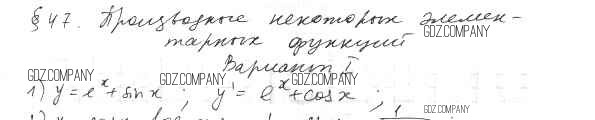 § 47. Производные некоторых элемен-
тарных функций
GDZ.COMPANY
Вариант I
GDZ.COMPANY GDZ.COMPANY GDZ.COMPANY
1) y = e^x + sin x ; y' = e^x + cos x ;
GDZ.COMPANY